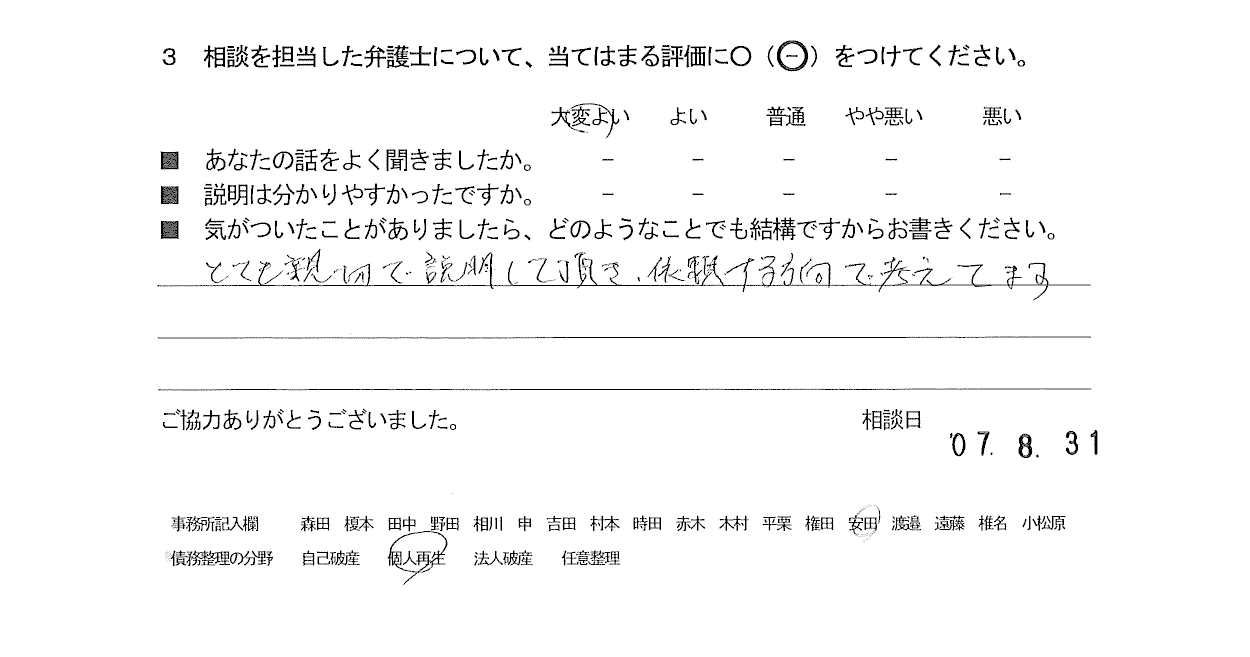 3 相談を担当した弁護士について、当てはまる評価に○(㊀)をつけてください。
大変よい よい 普通 やや悪い 悪い
■ あなたの話をよく聞きましたか。 － － － － －
■ 説明は分かりやすかったですか。 － － － － －
■ 気がついたことがありましたら、どのようなことでも結構ですからお書きください。
とても親切で説明して頂き、依頼する方向で考えてます
ご協力ありがとうございました。 相談日
'07. 8. 31
事務所記入欄 森田 榎本 田中 野田 相川 申 吉田 村本 時田 赤木 木村 平栗 権田 安田 渡邉 遠藤 椎名 小松原
債務整理の分野 自己破産 個人再生 法人破産 任意整理